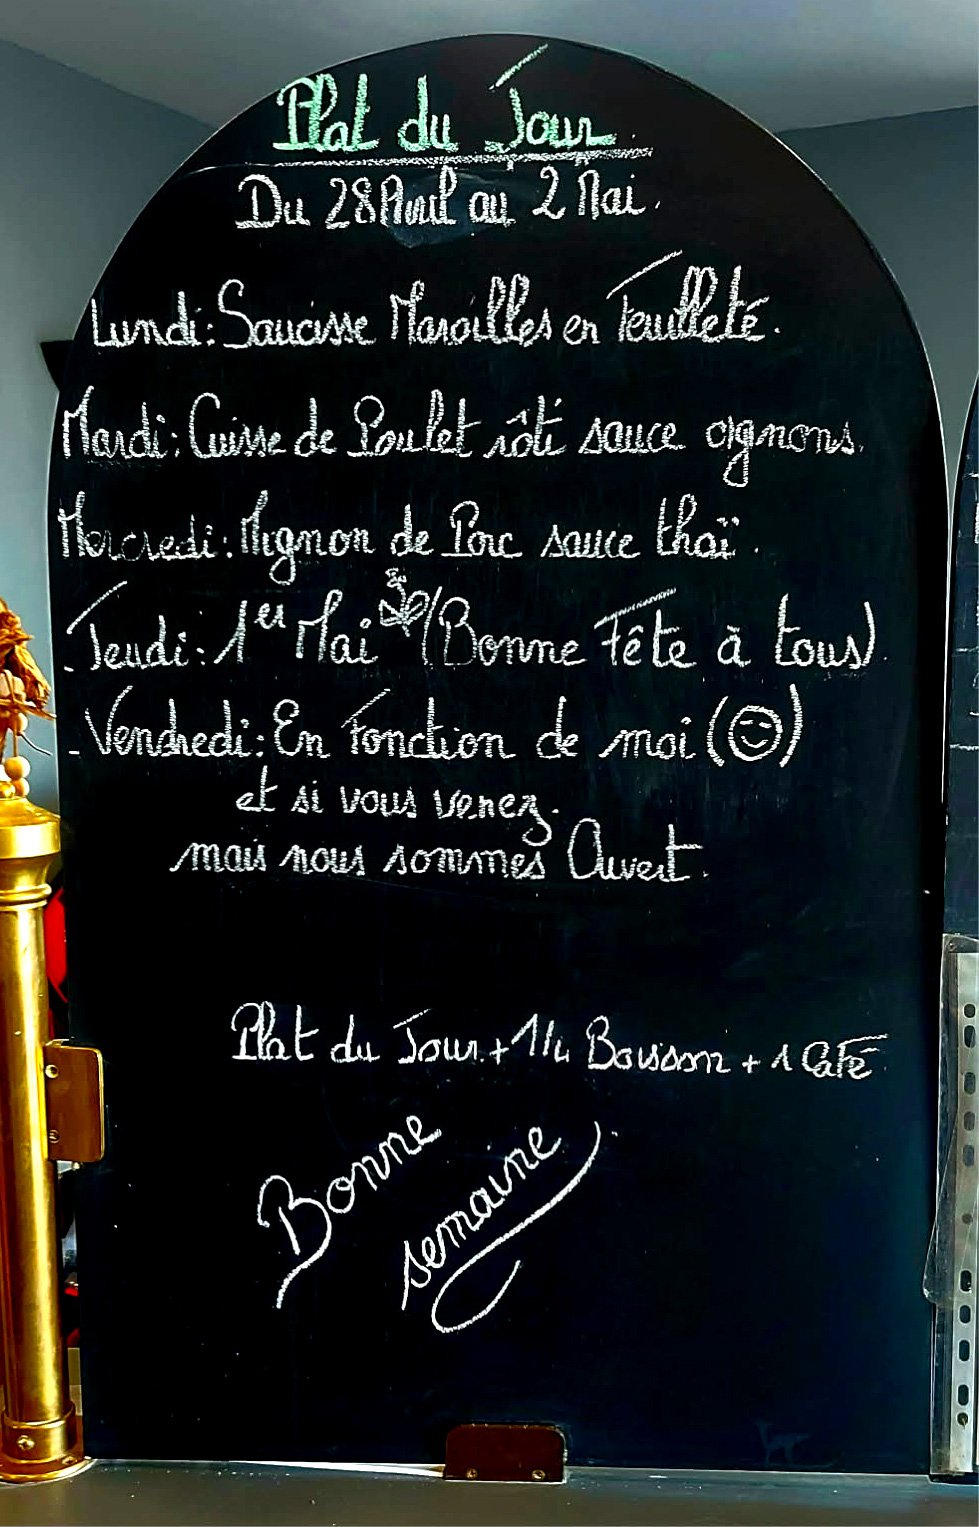 Plat du Jour
Du 28 Avril au 2 Mai.
Lundi: Saucisse Maroilles en Feuilleté.
Mardi: Cuisse de Poulet rôti sauce oignons.
Mercredi: Mignon de Porc sauce thaï.
- Jeudi: 1er Mai (Bonne Fête à tous)
- Vendredi: En Fonction de moi (☺)
et si vous venez.
mais nous sommes Ouvert.
Plat du Jour + 1/4 Boisson + 1 Café
Bonne
semaine